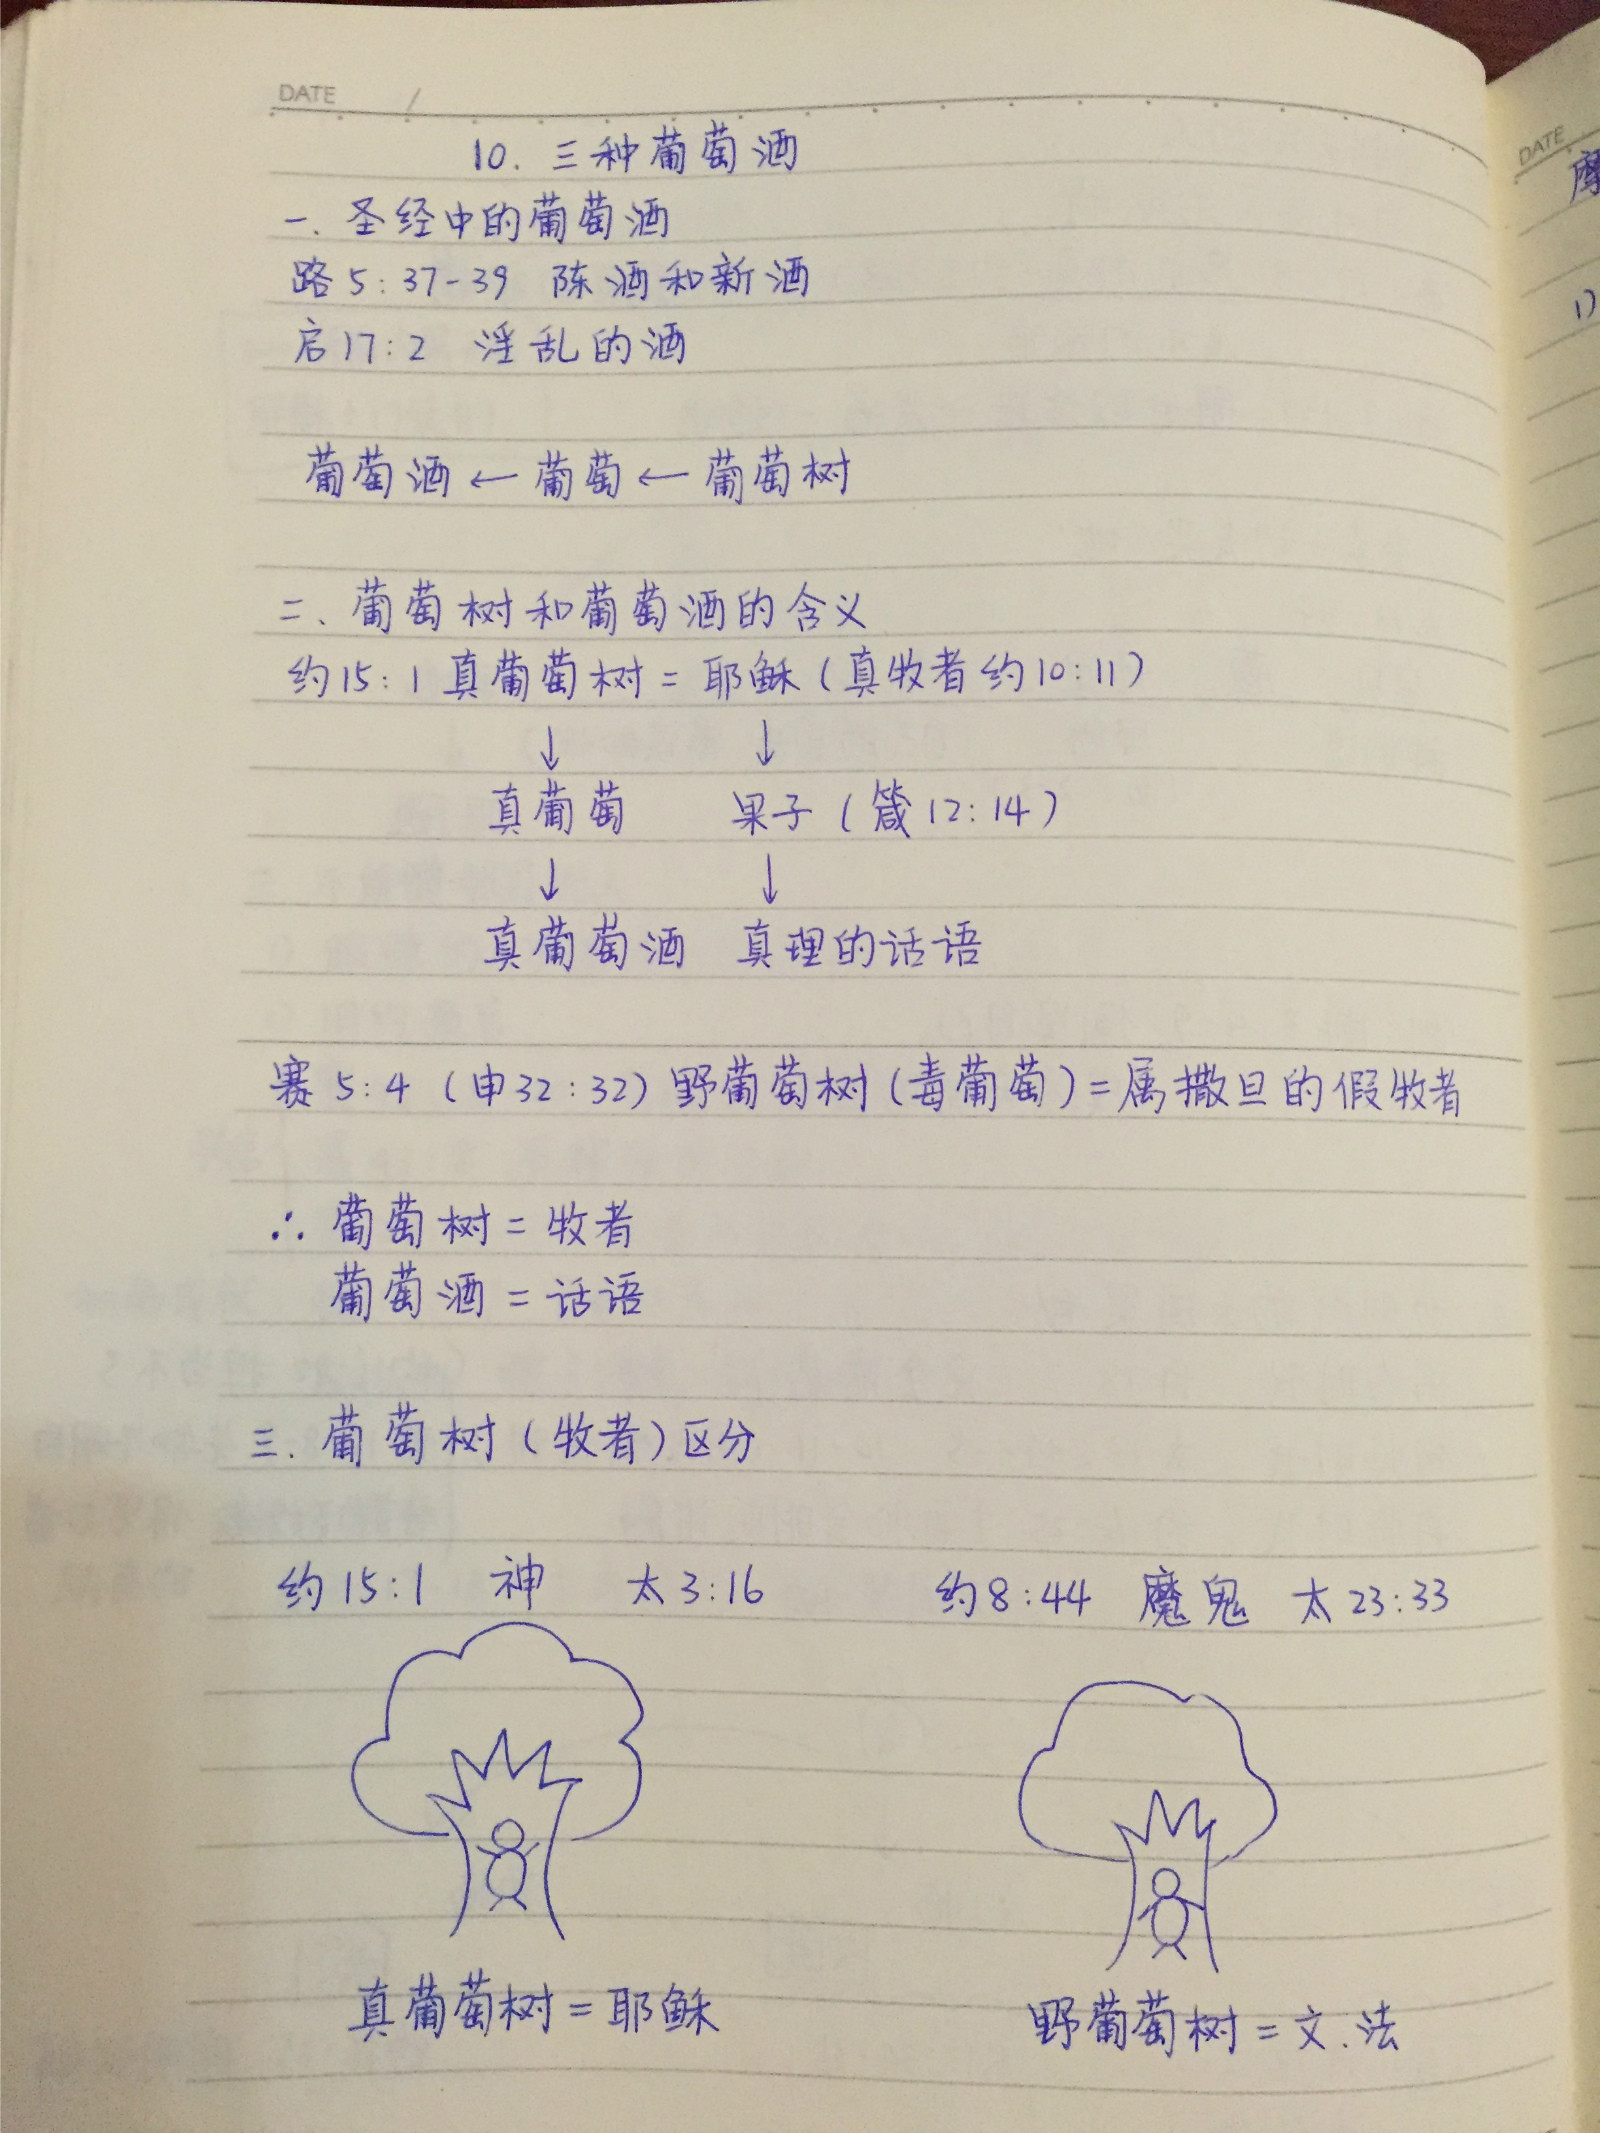 DATE /
10. 三种葡萄酒
一. 圣经中的葡萄酒
路5:37-39 陈酒和新酒
启17:2 淫乱的酒
葡萄酒←葡萄←葡萄树
二、葡萄树和葡萄酒的含义
约15:1 真葡萄树=耶稣(真牧者约10:11)
↓ ↓
真葡萄 果子(箴12:14)
↓ ↓
真葡萄酒 真理的话语
赛5:4 (申32:32) 野葡萄树(毒葡萄)=属撒旦的假牧者
∴ 葡萄树=牧者
葡萄酒=话语
三. 葡萄树(牧者)区分
约15:1 神 太3:16 约8:44 魔鬼 太23:33
真葡萄树=耶稣 野葡萄树=文.法
DATE
1)